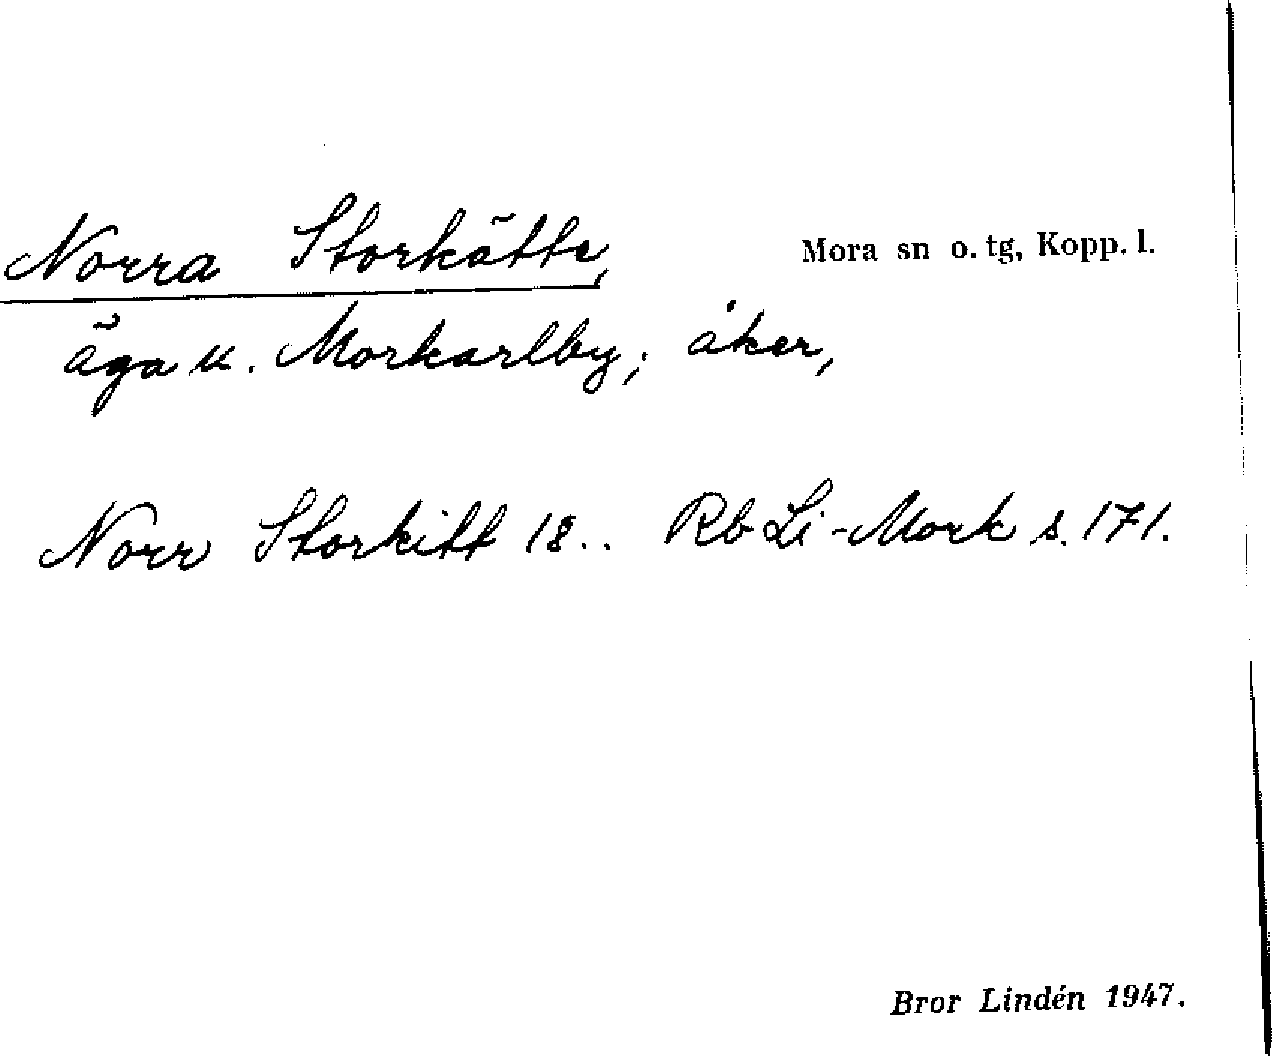 Norra Storkätte,
Mora sn o. tg, Kopp. l.
äga u. Morkarlby; åker,
Norr Storkitt 18.. Rb Li-Mork s. 171.
Bror Lindén 1947.